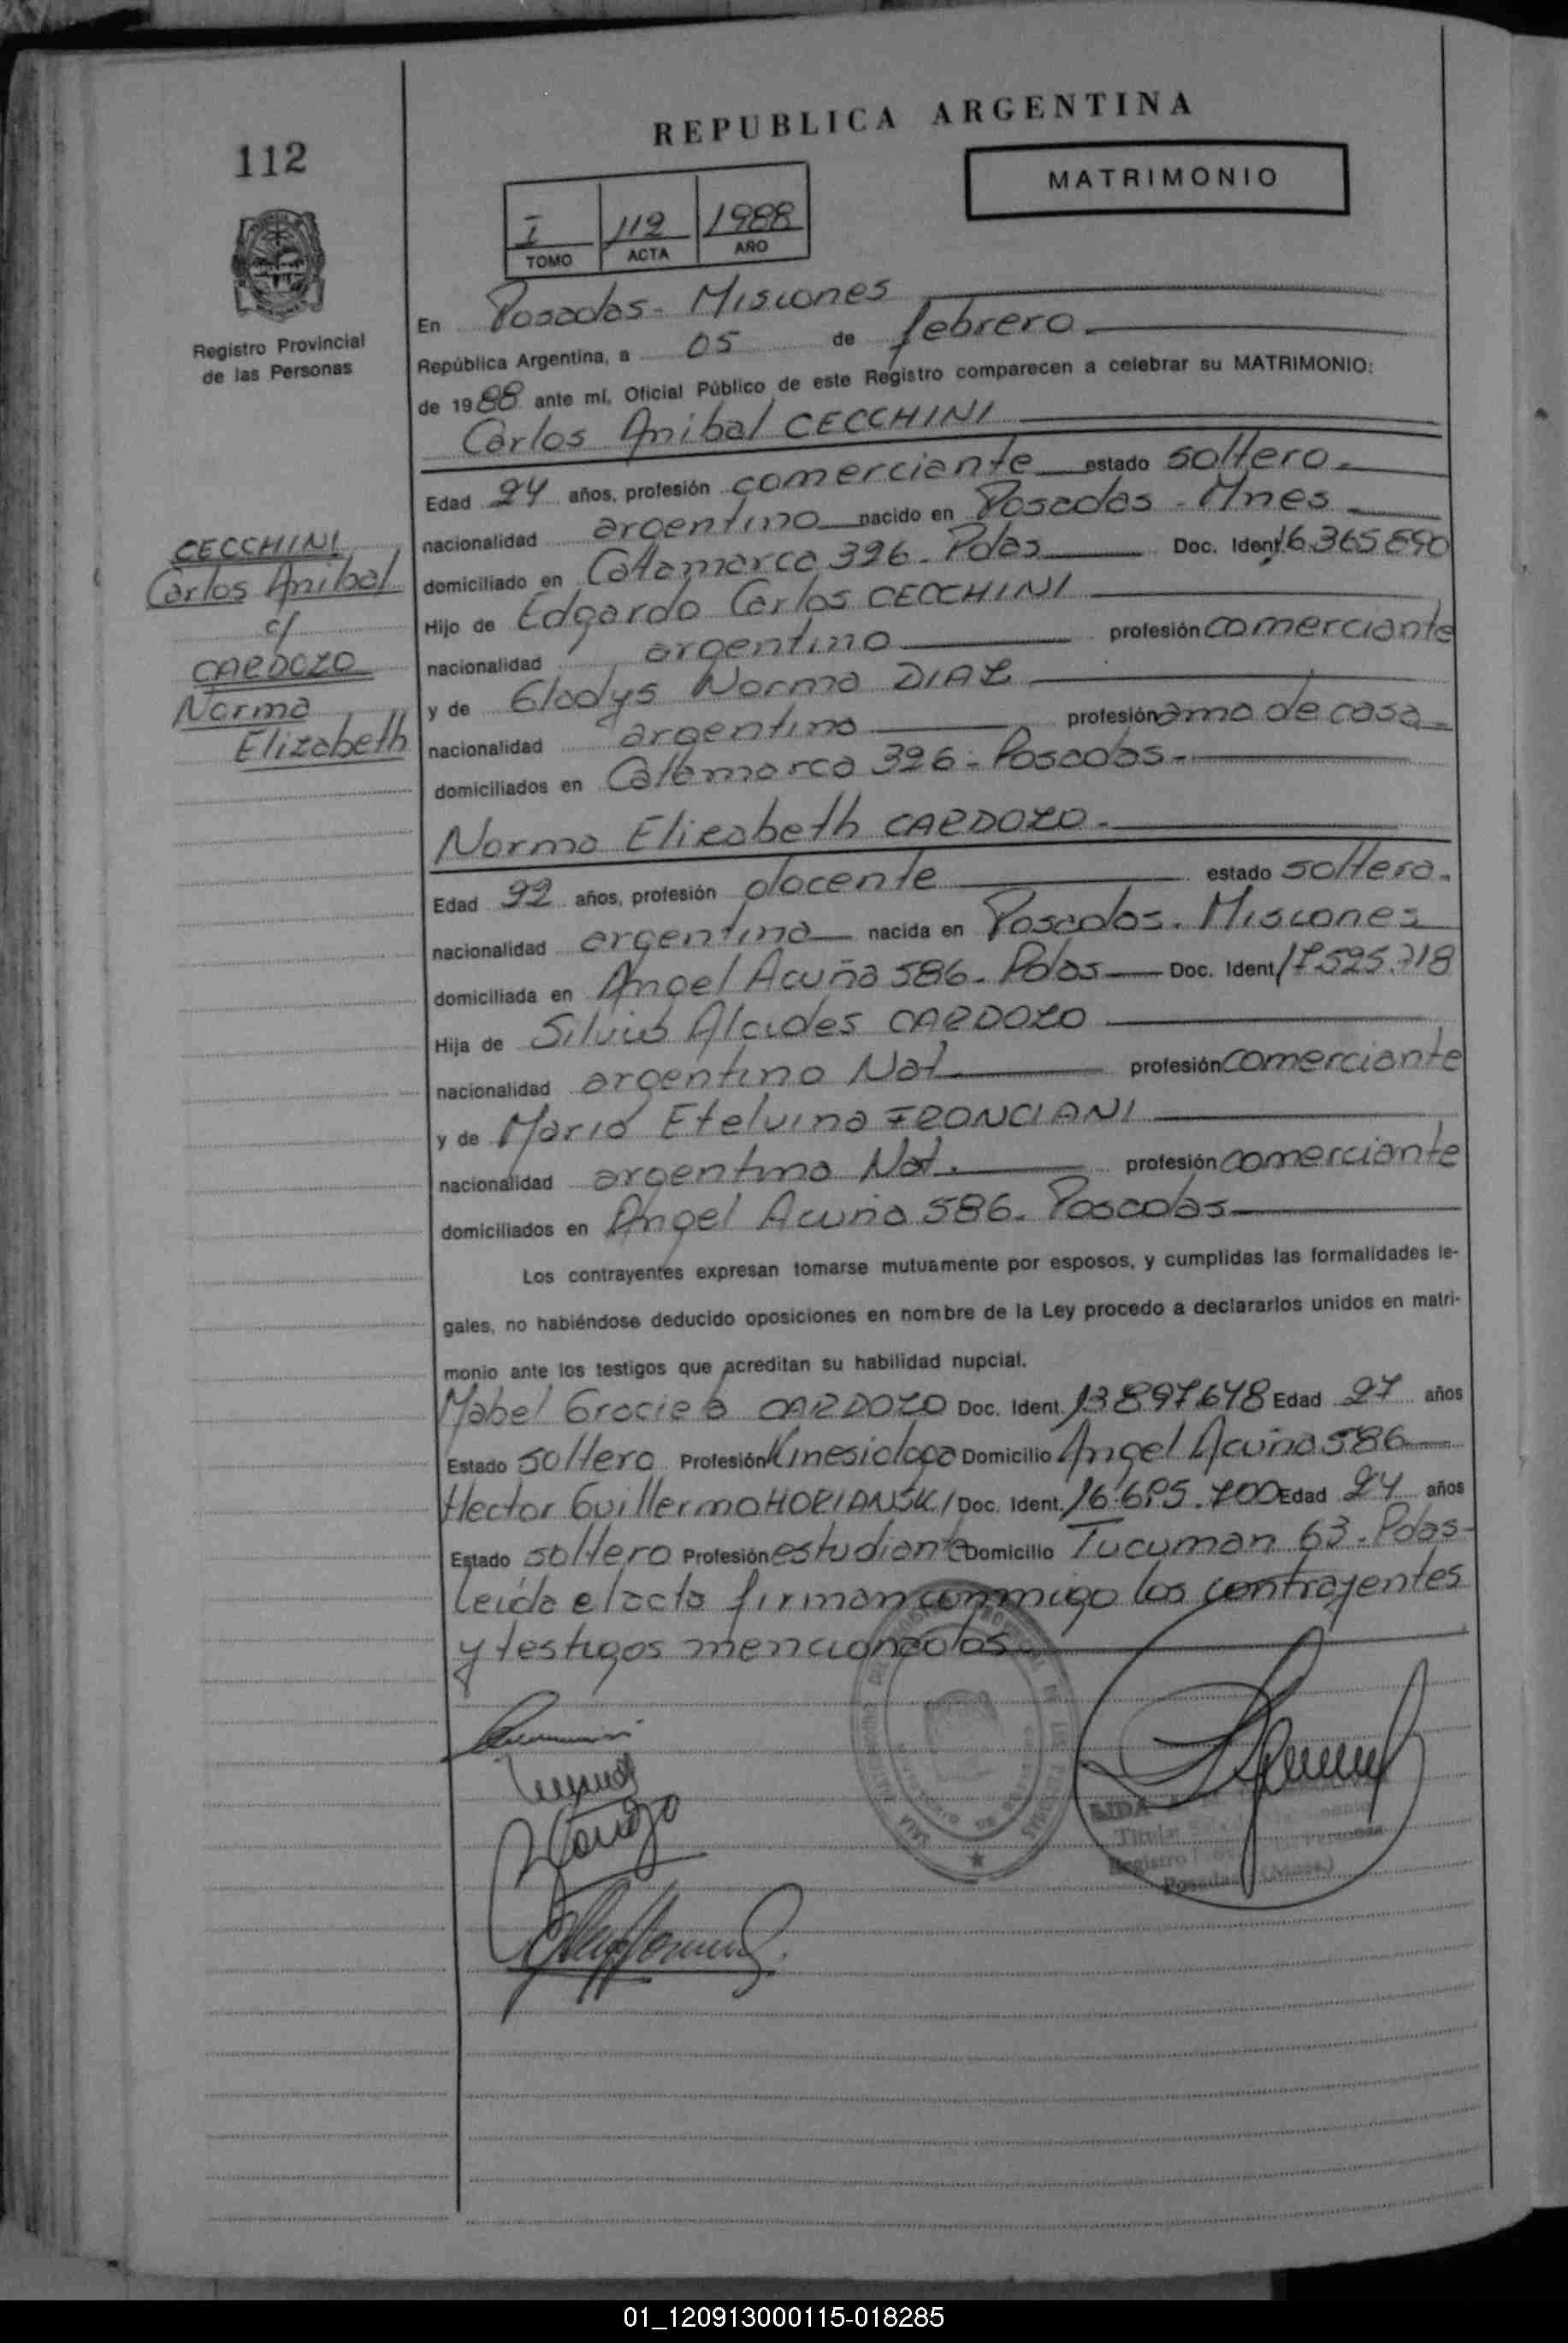 REPUBLICA ARGENTINA
112
MATRIMONIO
I 112 1988
TOMO ACTA AÑO
Registro Provincial
de las Personas
En Posadas - Misiones
República Argentina, a 05 de febrero
de 1988 ante mí, Oficial Público de este Registro comparecen a celebrar su MATRIMONIO:
Carlos Anibal CECCHINI
Edad 24 años, profesión comerciante estado soltero.
nacionalidad argentino nacido en Posadas - Mnes
domiciliado en Catamarca 326 - Pdas Doc. Ident. 16.365.890
Hijo de Edgardo Carlos CECCHINI
nacionalidad argentino profesión comerciante
y de Gladys Norma DIAZ
nacionalidad argentina profesión ama de casa
domiciliados en Catamarca 326 - Posadas -
CECCHINI
Carlos Anibal
c/
CARDOZO
Norma
Elizabeth
Norma Elizabeth CARDOZO -
Edad 22 años, profesión docente estado soltera.
nacionalidad argentina nacida en Posadas - Misiones
domiciliada en Angel Acuña 586 - Pdas Doc. Ident. 17.525.718
Hija de Silvio Alcides CARDOZO
nacionalidad argentino Nat. profesión comerciante
y de Maria Etelvina FRONCIANI
nacionalidad argentina Nat. profesión comerciante
domiciliados en Angel Acuña 586 - Posadas
Los contrayentes expresan tomarse mutuamente por esposos, y cumplidas las formalidades le-
gales, no habiéndose deducido oposiciones en nombre de la Ley procedo a declararlos unidos en matri-
monio ante los testigos que acreditan su habilidad nupcial.
Mabel Graciela CARDOZO Doc. Ident. 13.897.648 Edad 27 años
Estado soltera Profesión Kinesiologa Domicilio Angel Acuña 586
Hector Guillermo HORIANSKI Doc. Ident. 16.695.700 Edad 24 años
Estado soltero Profesión estudiante Domicilio Tucuman 63 - Pdas -
Leida el acta firman conmigo los contrayentes
y testigos mencionados
LIDA
Titular
Registro
Posadas (Mnes.)
01_120913000115-018285